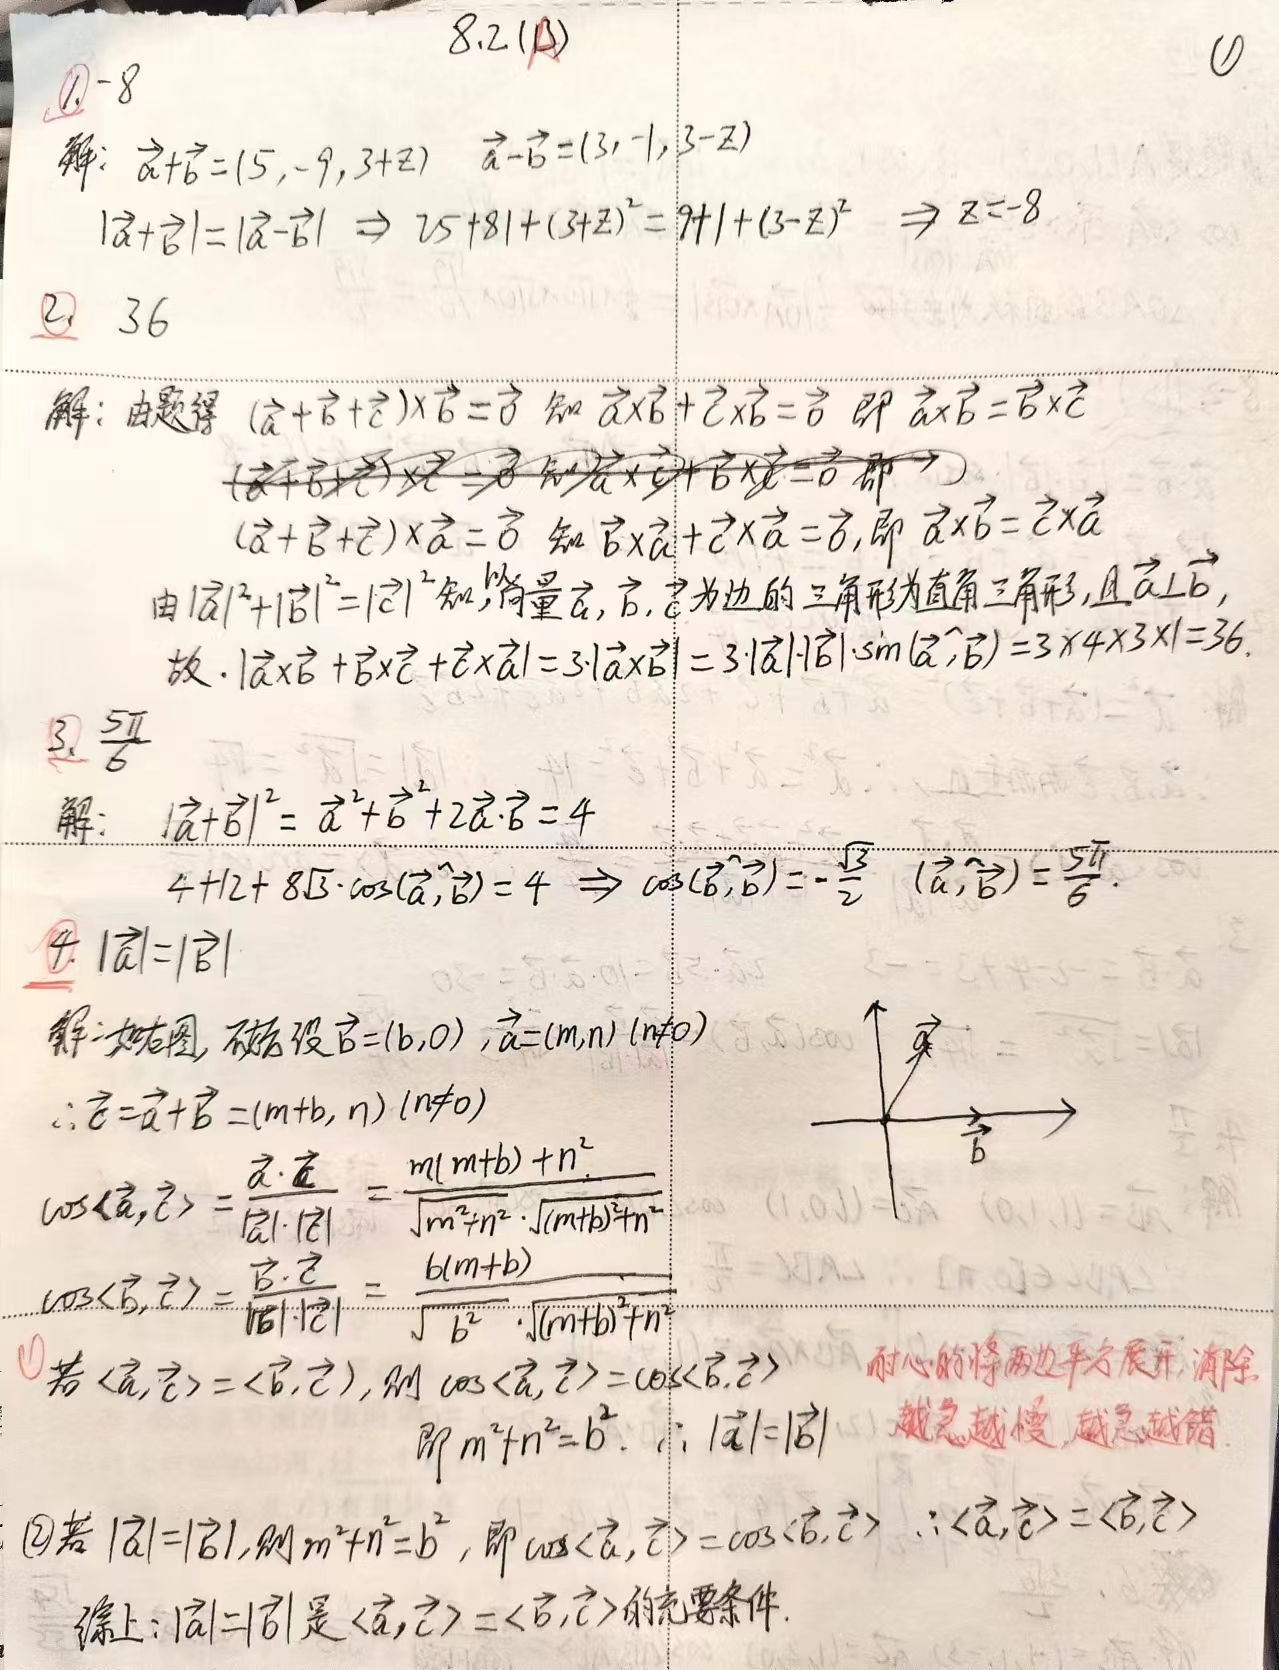 8.2(A)
①
1. -8
解: $\vec{a}+\vec{b}=(5,-9,3+z)$ $\vec{a}-\vec{b}=(3,-1,3-z)$
$|\vec{a}+\vec{b}|=|\vec{a}-\vec{b}|$ ⇒ $25+81+(3+z)^2=9+1+(3-z)^2$ ⇒ $z=-8$
2. 36
解: 由题得 $(\vec{a}+\vec{b}+\vec{c})\times\vec{b}=\vec{0}$ 知 $\vec{a}\times\vec{b}+\vec{c}\times\vec{b}=\vec{0}$ 即 $\vec{a}\times\vec{b}=\vec{b}\times\vec{c}$
$(\vec{a}+\vec{b}+\vec{c})\times\vec{c}=\vec{0}$ 知 $\vec{a}\times\vec{c}+\vec{b}\times\vec{c}=\vec{0}$ 即
$(\vec{a}+\vec{b}+\vec{c})\times\vec{a}=\vec{0}$ 知 $\vec{b}\times\vec{a}+\vec{c}\times\vec{a}=\vec{0}$, 即 $\vec{a}\times\vec{b}=\vec{c}\times\vec{a}$
由 $|\vec{a}|^2+|\vec{b}|^2=|\vec{c}|^2$ 知, 以向量 $\vec{a},\vec{b},\vec{c}$ 为边的三角形为直角三角形, 且 $\vec{a}\perp\vec{b}$,
故. $|\vec{a}\times\vec{b}+\vec{b}\times\vec{c}+\vec{c}\times\vec{a}|=3\cdot|\vec{a}\times\vec{b}|=3\cdot|\vec{a}|\cdot|\vec{b}|\cdot\sin(\widehat{\vec{a},\vec{b}})=3\times4\times3\times1=36.$
3. $\frac{5\pi}{6}$
解: $|\vec{a}+\vec{b}|^2=\vec{a}^2+\vec{b}^2+2\vec{a}\cdot\vec{b}=4$
$4+12+8\sqrt{3}\cdot\cos(\widehat{\vec{a},\vec{b}})=4$ ⇒ $\cos(\widehat{\vec{b},\vec{b}})=-\frac{\sqrt{3}}{2}$ $(\widehat{\vec{a},\vec{b}})=\frac{5\pi}{6}.$
4. $|\vec{a}|=|\vec{b}|$
解: 如右图, 不妨设 $\vec{b}=(b,0)$, $\vec{a}=(m,n)$ $(n\neq0)$
$\vec{a}$
∴ $\vec{c}=\vec{a}+\vec{b}=(m+b,n)$ $(n\neq0)$
$\vec{b}$
$\cos<\vec{a},\vec{c}>=\frac{\vec{a}\cdot\vec{c}}{|\vec{a}|\cdot|\vec{c}|}=\frac{m(m+b)+n^2}{\sqrt{m^2+n^2}\cdot\sqrt{(m+b)^2+n^2}}$
$\cos<\vec{b},\vec{c}>=\frac{\vec{b}\cdot\vec{c}}{|\vec{b}|\cdot|\vec{c}|}=\frac{b(m+b)}{\sqrt{b^2}\cdot\sqrt{(m+b)^2+n^2}}$
① 若 $<\vec{a},\vec{c}>=<\vec{b},\vec{c}>$, 则 $\cos<\vec{a},\vec{c}>=\cos<\vec{b},\vec{c}>$
耐心的将两边平方展开, 消除
即 $m^2+n^2=b^2$. ∴ $|\vec{a}|=|\vec{b}|$
越急越慢, 越急越错.
② 若 $|\vec{a}|=|\vec{b}|$, 则 $m^2+n^2=b^2$, 即 $\cos<\vec{a},\vec{c}>=\cos<\vec{b},\vec{c}>$ ∴ $<\vec{a},\vec{c}>=<\vec{b},\vec{c}>$
综上: $|\vec{a}|=|\vec{b}|$ 是 $<\vec{a},\vec{c}>=<\vec{b},\vec{c}>$ 的充要条件.